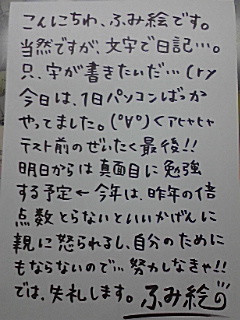 こんにちわ、ふみ絵です。
当然ですが、文字で日記…。
只、字が書きたいだ…(ry
今日は、1日パソコンばっか
やってました。(°∀°)<アヒャヒャ
テスト前のぜいたく最後!!
明日からは真面目に勉強
する予定←今年は、昨年の倍
点数とらないといいかげんに
親に怒られるし、自分のために
もならないので…努力しなきゃ!!
では、失礼します。ふみ絵